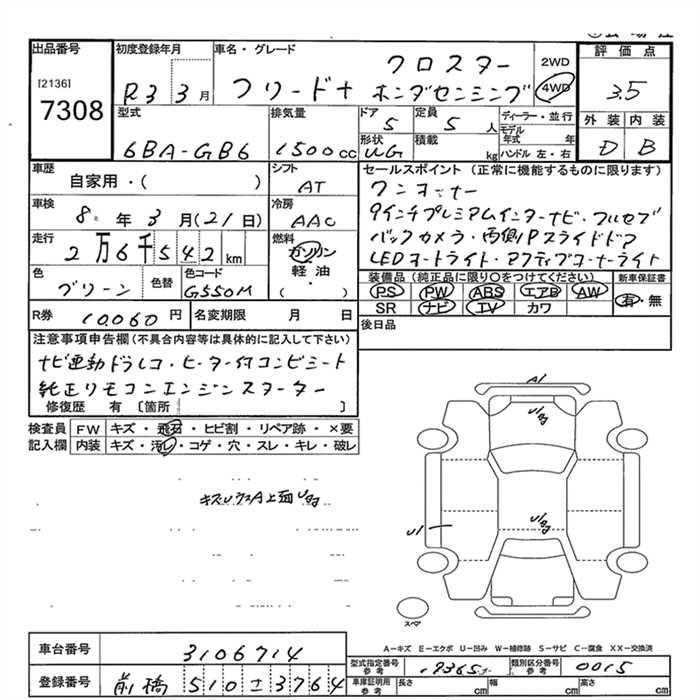 出品番号
[2136]
7308
初度登録年月
R3 3月
車名・グレード
フリード+ クロスター ホンダセンシング
2WD
4WD
評価点
3.5
外装 内装
D B
型式
6BA-GB6
排気量
1500cc
ドア
5
定員
5人
形状
WG
積載
kg
ディーラー・並行
モデル年式 年
ハンドル 左・右
車歴
自家用・( )
シフト
AT
車検
8年3月(21日)
冷房
AAC
走行
2万6千542km
燃料
ガソリン
軽油・
( )
色
グリーン
色替
色コード
G550M
R券
10,060円
名変期限 月 日
セールスポイント(正常に機能するものに限ります)
ワンオーナー
9インチプレミアムインターナビ・フルセグ
バックカメラ・両側Pスライドドア
LEDオートライト・アクティブコーナーライト
装備品(純正品に限り○をつけてください)
PS PW ABS エアB AW
SR ナビ TV カワ
新車保証書
有・無
後日品
注意事項申告欄(不具合内容等は具体的に記入して下さい)
ナビ連動ドラレコ・ヒーター付コンビシート
純正リモコンエンジンスターター
修復歴 有 [箇所 ]
検査員記入欄
FW キズ・飛石・ヒビ割・リペア跡・×要
内装 キズ・汚レ・コゲ・穴・スレ・キレ・破レ
A1
U1
スペア
A-キズ E-エクボ U-凹み W-補修跡 S-サビ C-腐食 XX-交換済
車台番号
3106714
登録番号
前橋 510 ± 3764
型式指定番号
参考
類別区分番号
参考
0015
車庫証明用
参考
長さ cm
幅 cm
高さ cm